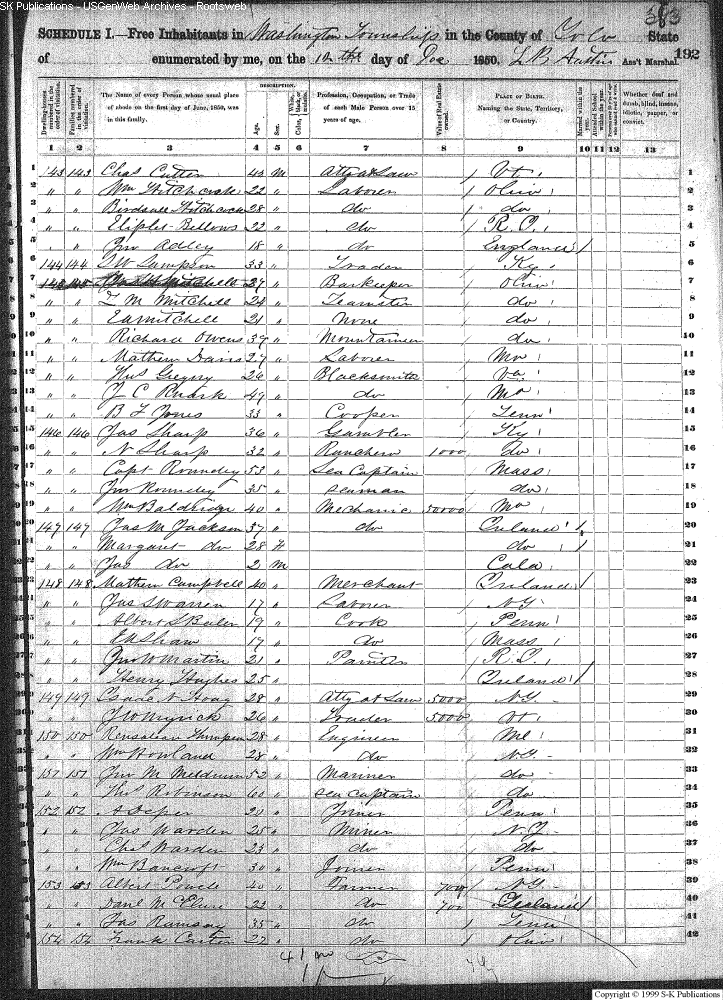 SK Publications - USGenWeb Archives - Rootsweb
383
SCHEDULE I.—Free Inhabitants in Washington Township in the County of Yo Co State
of enumerated by me, on the 10th day of Dec 1850. L B Austin Ass't Marshal. 192
Dwelling-houses numbered in the order of visitation.
Families numbered in the order of visitation.
The Name of every Person whose usual place of abode on the first day of June, 1850, was in this family.
DESCRIPTION.
Age.
Sex.
Color, White, black, or mulatto.
Profession, Occupation, or Trade of each Male Person over 15 years of age.
Value of Real Estate owned.
PLACE OF BIRTH. Naming the State, Territory, or Country.
Married within the year.
Attended School within the year.
Whether deaf and dumb, blind, insane, idiotic, pauper, or convict.
1 2 3 4 5 6 7 8 9 10 11 12 13
1 143 143 Chas Cutter M Atty at Law Vt 1
2 " " Wm Hitchcock 22 " Laborer Ohio 2
3 " " Birdsall Hitchcock 28 " do do 3
4 " " Eliplet Bellows 22 " do 4
5 " " Jno Adley 18 " do England / 5
6 144 144 Sampson 33 " Trader Ky 6
7 Mitchell 27 " Barkeeper Ohio 7
8 " " M Mitchell 24 " Teamster do 8
9 " " Ea Mitchell 21 " None do 9
10 " " Richard Owens 39 " Mountaineer do 10
11 " " Mathew Davis 27 " Laborer Mo 11
12 " " Gregory 26 " Blacksmith Va 12
13 " " J C Ruark 49 " do Mo 13
14 " " B F Jones 33 " Cooper Tenn 14
15 146 146 Jas Sharp 36 " Gambler Ky 15
16 " " N Sharp 32 " Ranchero 1000 do 16
17 " " Capt Roundey 53 " Sea Captain Mass 17
18 " " Jno Roundey 35 " Seaman do 18
19 " " Wm Baldridge 40 " Mechanic 50000 Mo 19
20 147 147 Jas M Jackson 37 " do Ireland / 20
21 " " Margaret do 28 F do / 21
22 " " Jas do 2 M Cala 22
23 148 148 Mathew Campbell 40 " Merchant Ireland / 23
24 " " Jas S Warren 17 " Laborer NY 24
25 " " Albert S 19 " Cook Penn 25
26 " " Shaw 17 " do Mass 26
27 " " Jno W Martin 21 " Painter R.I. 27
28 " " Henry Hughes 25 " Ireland / 28
29 149 149 Isaac N Hoag 28 " Atty at Law 5000 N.Y. 29
30 " " Myrick 26 " Trader 5000 Vt 30
31 150 150 Rensalear Thompson 28 " Engineer Me 31
32 " " Wm Howland 28 " do N.Y. 32
33 151 151 Jno M Meldrum 52 " Mariner do 33
34 " " Robinson 60 " Sea Captain do 34
35 152 152 20 " Joiner Penn 35
36 " " Jas Warden 25 " Miner N.J. 36
37 " " Chas Warden 23 " do do 37
38 " " Wm Bancroft 30 " Joiner Penn 38
39 153 153 Albert Powell 40 " Farmer 700 N.Y. 39
40 " " Danl 22 " do 700 Ireland / 40
41 " " Jas Ramsay 35 " do Tenn 41
42 154 154 Frank Carter 22 " do Ohio 42
41 m
Copyright © 1999 S-K Publications